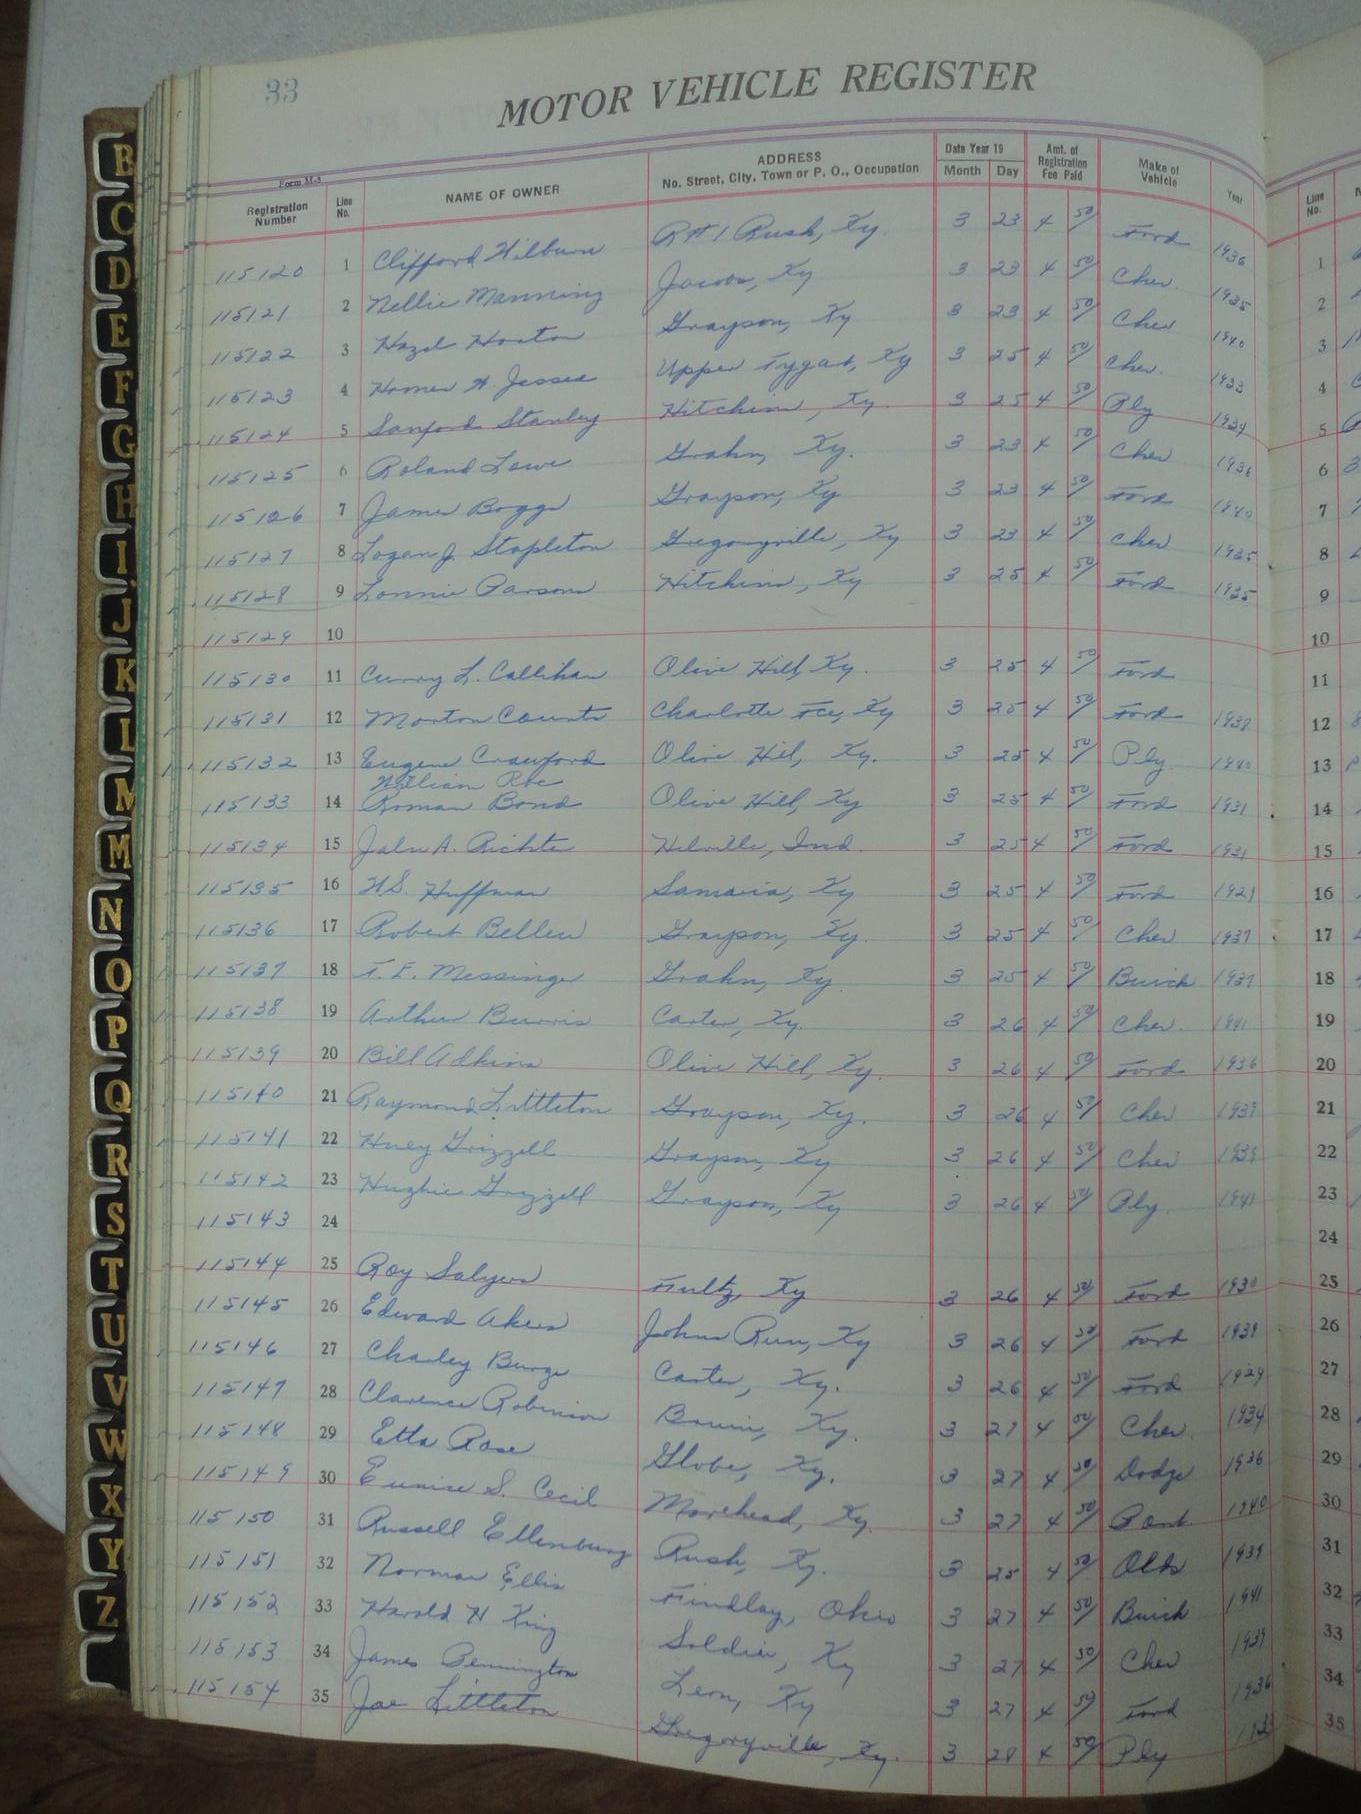 33
MOTOR VEHICLE REGISTER
Form M-8
Registration Number Line No. NAME OF OWNER ADDRESS No. Street, City, Town or P. O., Occupation Date Year 19 Month Day Amt. of Registration Fee Paid Make of Vehicle Year
115120 1 Clifford Wilburn Rt 1 Rush, Ky. 3 23 4 50 Ford 1936
115121 2 Nellie Manning Jacobs, Ky 3 23 4 50 Chev. 1935
115122 3 Hazel Horton Grayson, Ky 3 23 4 50 Chev 1940
115123 4 Homer H. Jessee Upper Tygart, Ky 3 25 4 50 Chev. 1933
115124 5 Sanford Stanley Hitchins, Ky. 3 25 4 50 Ply 1934
115125 6 Roland Lowe Grahn, Ky. 3 23 4 50 Chev 1936
115126 7 James Boggs Grayson, Ky 3 23 4 50 Ford 1940
115127 8 Logan J. Stapleton Gregoryville, Ky 3 23 4 50 Chev 1935
115128 9 Lonnie Parsons Hitchins, Ky 3 25 4 50 Ford 1935
115129 10
115130 11 Curry L. Callihan Olive Hill, Ky. 3 25 4 50 Ford
115131 12 Morton Counts Charlotte Fce, Ky 3 25 4 50 Ford 1938
115132 13 Eugene Crawford Olive Hill, Ky. 3 25 4 50 Ply. 1940
William Roe
115133 14 Roman Bond Olive Hill, Ky 3 25 4 50 Ford 1931
115134 15 John A. Richte Ind. 3 25 4 50 Ford 1931
115135 16 W.S. Huffman Samaria, Ky 3 25 4 50 Ford 1929
115136 17 Robert Bellew Grayson, Ky. 3 25 4 50 Chev 1937
115137 18 T. E. Messinger Grahn, Ky. 3 25 4 50 Buick 1937
115138 19 Arthur Burris Carter, Ky. 3 26 4 50 Chev. 1941
115139 20 Bill Adkins Olive Hill, Ky. 3 26 4 50 Ford 1936
115140 21 Raymond Littleton Grayson, Ky. 3 26 4 50 Chev 1939
115141 22 Huey Grizzell Grayson, Ky 3 26 4 50 Chev 1939
115142 23 Hughie Grizzell Grayson, Ky 3 26 4 50 Ply. 1941
115143 24
115144 25 Roy Salyers Fultz, Ky 3 26 4 50 Ford 1930
115145 26 Edward Akers Johns Run, Ky 3 26 4 50 Ford 1939
115146 27 Charley Burge Carter, Ky. 3 26 4 50 Ford 1929
115147 28 Clarence Robinson Ky. 3 27 4 50 Chev. 1934
115148 29 Etta Rose Globe, Ky. 3 27 4 50 Dodge 1936
115149 30 Eunice S. Cecil Morehead, Ky. 3 27 4 50 Pont. 1940
115150 31 Russell Ellenburg Rush, Ky. 3 25 4 50 Olds 1939
115151 32 Norman Ellis Findlay, Ohio 3 27 4 50 Buick 1941
115152 33 Harold H King Soldier, Ky 3 27 4 50 Chev 1939
115153 34 James Pennington Leon, Ky 3 27 4 50 Ford 1936
115154 35 Joe Littleton Gregoryville, Ky. 3 28 4 50 Ply 1933
B
C
D
E
F
G
H
I
J
K
L
M
M
N
O
P
Q
R
S
T
U
V
W
X
Y
Z
Line No.
1
2
3
4
5
6
7
8
9
10
11
12
13
14
15
16
17
18
19
20
21
22
23
24
25
26
27
28
29
30
31
32
33
34
35